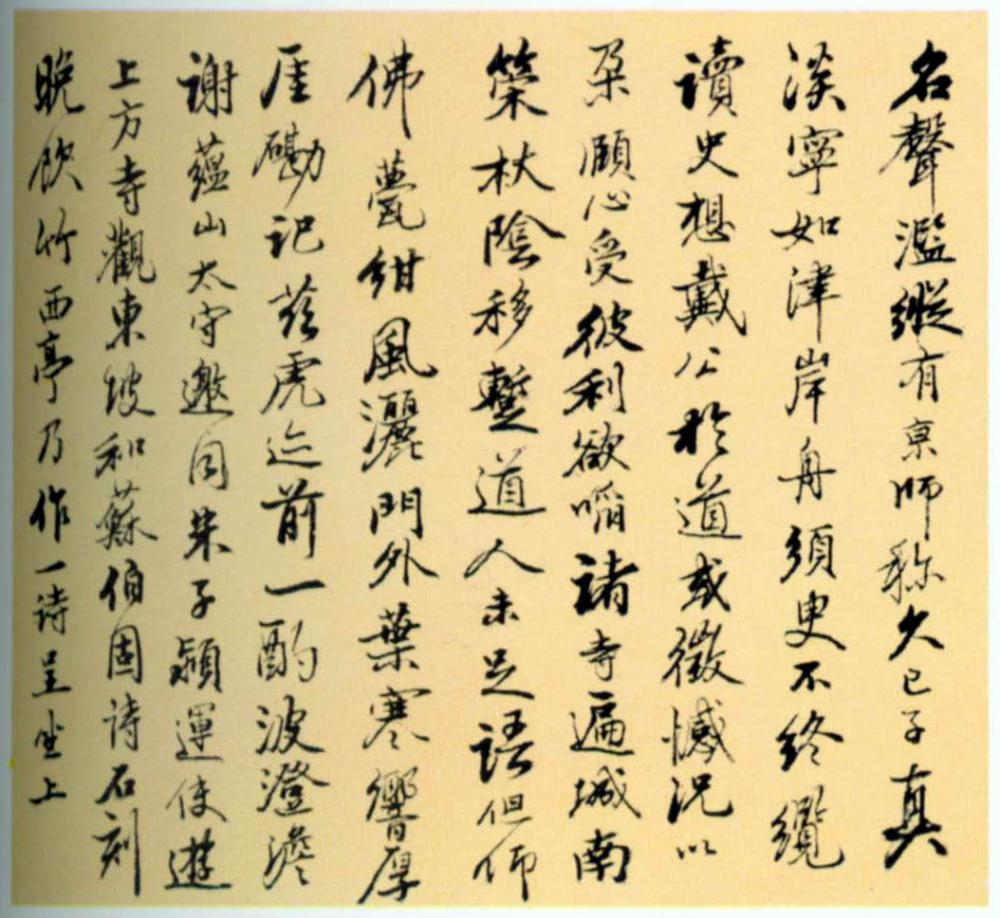 名聲濫縱有京師稱久已子真
淡寧如津岸舟須臾不終纜
讀史想戴公於道或徵憾況以
朵頤心受彼利欲啗諸寺遍城南
榮杖陰移蹔道人未足語但仰
佛薨紺風灑門外葉寒響厚
厓磡記茲虎迹前一酌波澄澹
謝蘊山太守邀同朱子潁運使遊
上方寺觀東坡和蘇伯固詩石刻
晚飲竹西亭乃作一詩呈坐上